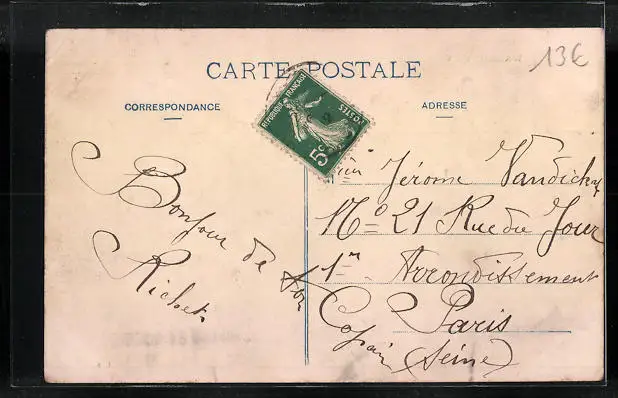 13€
CARTE POSTALE
CORRESPONDANCE
ADRESSE
REPUBLIQUE FRANÇAISE
POSTES
5c
Bonjour de ton
Copain
Richet
Jérome Vandick
No 21 Rue du Jour
1er Arrondissement
Paris
(Seine)